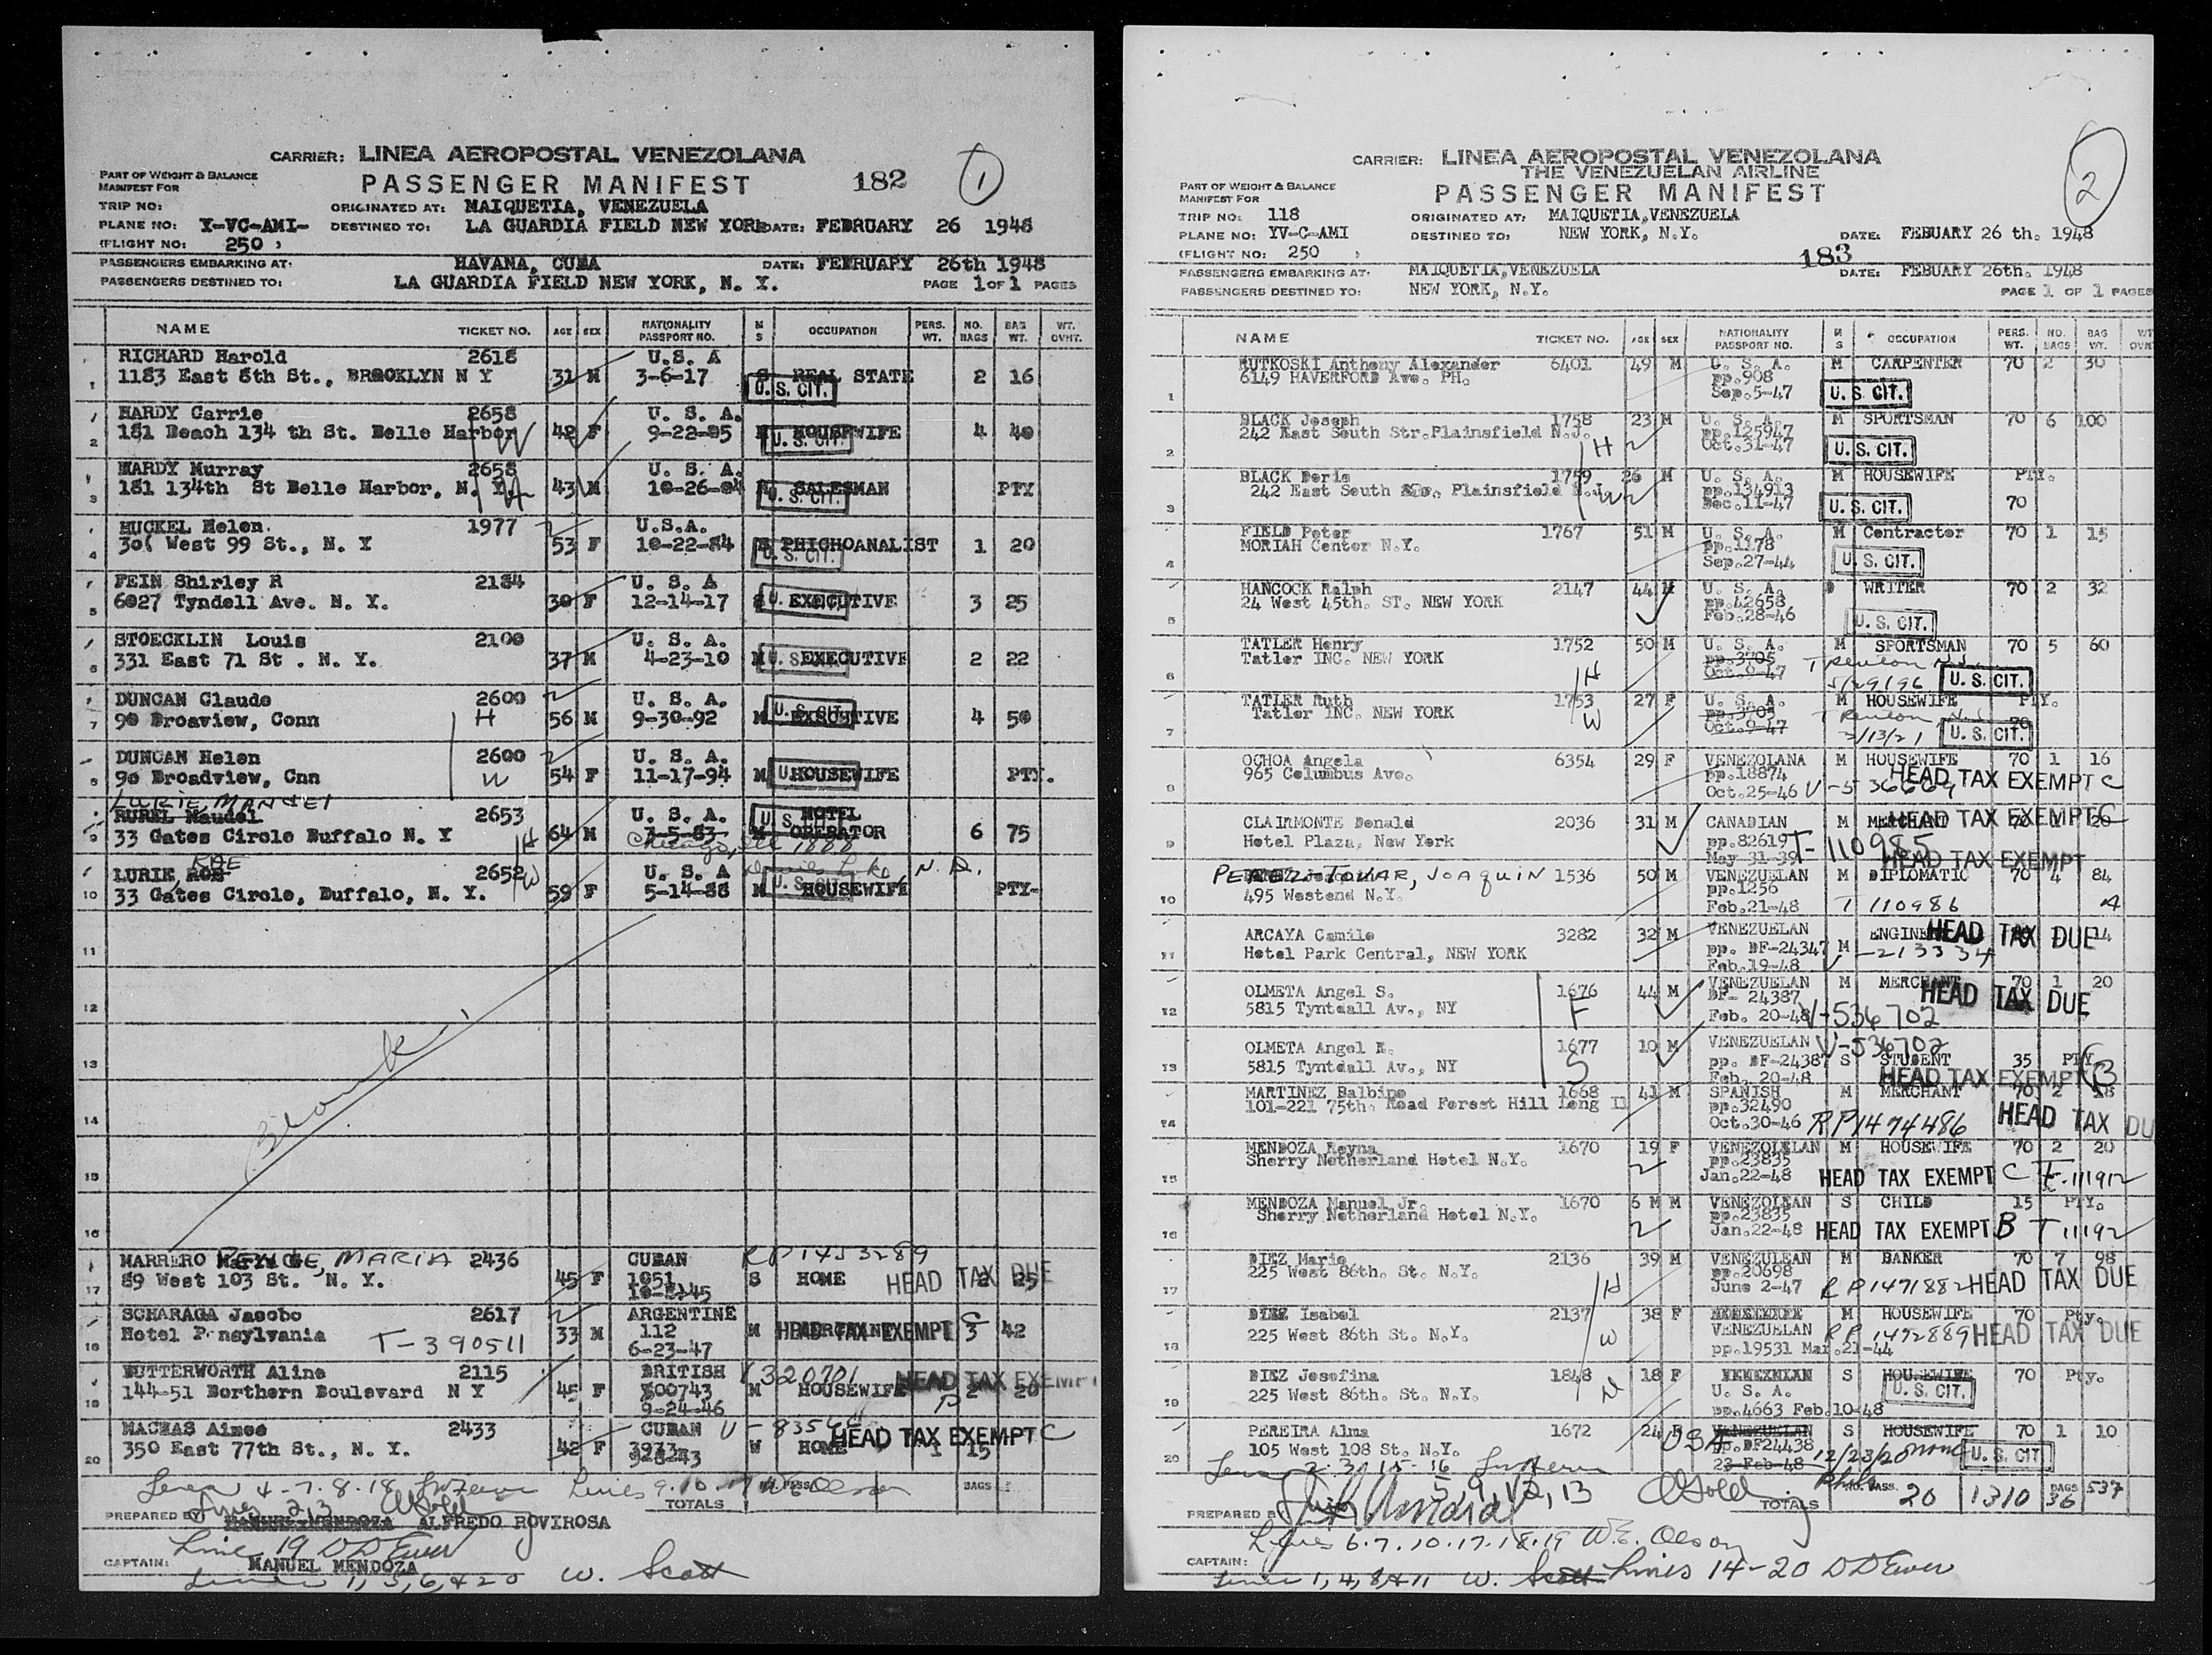 CARRIER: LINEA AEROPOSTAL VENEZOLANA
PART OF WEIGHT & BALANCE
MANIFEST FOR
PASSENGER MANIFEST 182 1
TRIP NO: ORIGINATED AT: MAIQUETIA, VENEZUELA
PLANE NO: Y-VC-AMI- DESTINED TO: LA GUARDIA FIELD NEW YORK DATE: FEBRUARY 26 1948
(FLIGHT NO: 250 )
PASSENGERS EMBARKING AT: HAVANA, CUBA DATE: FEBRUARY 26th 1948
PASSENGERS DESTINED TO: LA GUARDIA FIELD NEW YORK, N. Y. PAGE 1 OF 1 PAGES
NAME TICKET NO. AGE SEX NATIONALITY PASSPORT NO. M S OCCUPATION PERS. WT. NO. BAGS BAG WT. WT. OVHT.
RICHARD Harold 2618 U.S. A
1 1183 East 8th St., BROOKLYN N Y 31 M 3-6-17 S REAL STATE 2 16
U.S. CIT.
HARDY Carrie 2658 U. S. A.
2 181 Beach 134 th St. Belle Harbor W 42 F 9-22-05 HOUSEWIFE 4 40
U.S. CIT.
HARDY Murray 2658 U. S. A.
3 181 134th St Belle Harbor, N. Y H 43 M 10-26-04 SALESMAN PTY
U.S. CIT.
MUCKEL Helen. 1977 U.S.A.
4 306 West 99 St., N. Y 53 F 10-22-84 PHICHOANALIST 1 20
U.S. CIT.
FEIN Shirley R 2134 U. S. A
5 6027 Tyndell Ave. N. Y. 30 F 12-14-17 EXECUTIVE 3 25
STOECKLIN Louis 2100 U. S. A.
6 331 East 71 St . N. Y. 37 M 4-23-10 M EXECUTIVE 2 22
DUNCAN Claude 2600 U. S. A.
7 90 Broaview, Conn H 56 M 9-30-92 M EXECUTIVE 4 50
DUNCAN Helen 2600 U. S. A.
8 90 Broadview, Cnn W 54 F 11-17-94 M HOUSEWIFE PTY.
LURIE, MANUEL
2653 U. S. A. HOTEL
9 33 Gates Circle Buffalo N. Y H 64 M 3-5-83 M OPERATOR 6 75
Chicago, Ill 1888
RAE
LURIE 2652 W U. S. A Devils Lake, N. D.
10 33 Gates Circle, Buffalo, N. Y. 59 F 5-14-88 M HOUSEWIFE PTY-
11
12
13
Blank
14
15
16
MARRERO MARIA 2436 CUBAN RP 1453289
17 89 West 103 St. N. Y. 45 F 1051 S HOME HEAD TAX DUE 2 25
SCHARAGA Jacobo 2617 ARGENTINE
18 Hotel Pensylvania T-390511 33 M 112 M HEAD TAX EXEMPT C 3 42
6-23-47
BUTTERWORTH Aline 2115 BRITISH V 320701
19 144-51 Northern Boulevard N Y 45 F 800743 M HOUSEWIFE HEAD TAX EXEMPT 2 20
9-24-46
MACHAS Aimee 2433 CUBAN
20 350 East 77th St., N. Y. 42 F 3973 W HOME HEAD TAX EXEMPT C 1 15
TOTALS BAGS
PREPARED BY ALFREDO ROVIROSA
Line 19 DD Ewer
CAPTAIN: MANUEL MENDOZA
Lines 1, 5, 6, & 20 W. Scott
CARRIER: LINEA AEROPOSTAL VENEZOLANA
THE VENEZUELAN AIRLINE
PART OF WEIGHT & BALANCE
MANIFEST FOR
PASSENGER MANIFEST 2
TRIP NO: 118 ORIGINATED AT: MAIQUETIA, VENEZUELA
PLANE NO: YV-C-AMI DESTINED TO: NEW YORK, N.Y. DATE: FEBUARY 26 th. 1948
(FLIGHT NO: 250 ) 183
PASSENGERS EMBARKING AT: MAIQUETIA, VENEZUELA DATE: FEBUARY 26th. 1948
PASSENGERS DESTINED TO: NEW YORK, N.Y. PAGE 1 OF 1 PAGES
NAME TICKET NO. AGE SEX NATIONALITY PASSPORT NO. M S OCCUPATION PERS. WT. NO. BAGS BAG WT. WT OVH
RUTKOSKI Anthony Alexander 6401 49 M U. S. A. M CARPENTER 70 2 30
6149 HAVERFORD Ave. PH. pp.908
1 Sep.5-47 U.S. CIT.
BLACK Joseph 1758 23 M U. S. A. M SPORTSMAN 70 6 100
242 East South Str.Plainsfield N.J. H pp.125947
2 Oct.31-47 U.S. CIT.
BLACK Doris 1759 26 M U. S. A. M HOUSEWIFE PTY.
242 East South Plainsfield N.J. W pp.134913
3 Dec.11-47 U.S. CIT. 70
FIELD Peter 1767 51 M U. S. A. M Contractor 70 1 15
MORIAH Center N.Y. pp.1178
4 Sep.27-44 U.S. CIT.
HANCOCK Ralph 2147 44 M U. S. A. WRITER 70 2 32
24 West 45th. ST. NEW YORK pp.42658
5 Feb.28-46 U.S. CIT.
TATLER Henry 1752 50 M U. S. A. M SPORTSMAN 70 5 60
Tatler INC. NEW YORK H pp.3705 Trenton N.J.
6 Oct.9-47 5/29/96 U.S. CIT.
TATLER Ruth 1753 27 F U. S. A. M HOUSEWIFE PTY.
Tatler INC. NEW YORK W pp.3705 Trenton N.J. 70
7 Oct.9-47 2/13/21 U.S. CIT.
OCHOA Angela 6354 29 F VENEZOLANA M HOUSEWIFE 70 1 16
965 Columbus Ave. pp.18874 HEAD TAX EXEMPT C
8 Oct.25-46
CLAIRMONTE Donald 2036 31 M CANADIAN M MERCHANT HEAD TAX EXEMPT C
9 Hotel Plaza, New York pp.82619 T-110985
May 31-39 HEAD TAX EXEMPT
PEREZ-TOVAR, JOAQUIN 1536 50 M VENEZUELAN M DIPLOMATIC 70 4 84
10 495 Westend N.Y. pp.1256
Feb.21-48 T 110986 A
ARCAYA Camilo 3282 32 M VENEZUELAN HEAD TAX DUE
11 Hotel Park Central, NEW YORK pp. DF-24347 M V-213334
Feb.19-48
OLMETA Angel S. 1676 44 M VENEZUELAN M MERCHANT 70 1 20
12 5815 Tyntdall Av., NY F DF- 24387 HEAD TAX DUE
Feb. 20-48 V-536702
OLMETA Angel R. 1677 10 M VENEZUELAN V-536702
13 5815 Tyntdall Av., NY S pp. DF-24387 S STUDENT 35 PTY
Feb. 20-48 HEAD TAX EXEMPT B
MARTINEZ Balbino 1668 41 M SPANISH M MERCHANT 70 2 18
101-221 75th. Road Forest Hill Long Il pp.32490
14 Oct.30-46 RP1474486 HEAD TAX DU
MENDOZA Reyna 1670 19 F VENEZOLELAN M HOUSEWIFE 70 2 20
Sherry Netherland Hotel N.Y. pp.23835
15 Jan.22-48 HEAD TAX EXEMPT C T-111912
MENDOZA Manuel Jr. 1670 6 M M VENEZOLEAN S CHILD 15 PTY.
Sherry Netherland Hotel N.Y. pp.23835
16 Jan.22-48 HEAD TAX EXEMPT B T 11192
DIEZ Mario 2136 39 M VENEZULEAN M BANKER 70 7 98
225 West 86th. St. N.Y. H pp.20698
17 June 2-47 RP1471882 HEAD TAX DUE
DIEZ Isabel 2137 38 F M HOUSEWIFE 70 Pty.
225 West 86th St. N.Y. W VENEZUELAN RP 1472889 HEAD TAX DUE
18 pp.19531 Mar.21-44
DIEZ Josefina 1848 18 F S HOUSEWIFE 70 Pty.
225 West 86th. St. N.Y. U. S. A. U.S. CIT.
19 pp.4663 Feb.10-48
PEREIRA Alma 1672 24 F VENEZUELAN S HOUSEWIFE 70 1 10
105 West 108 St. N.Y. USA pp.DF24438 12/23/20 U.S. CIT
20 23-Feb-48 Phila
2. 3. 15-16
5, 9, 12, 13 TOTALS NO. PASS. 20 1310 BAGS 36 537
PREPARED BY
Lines 6.7.10.17.18.19 W.E. Olson
CAPTAIN:
Lines 1, 4, 8, & 11 W. Scott Lines 14-20 DD Ewer